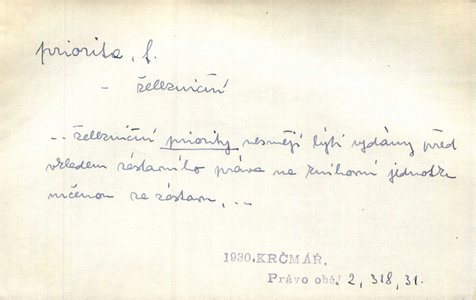 priorita, f.
- železniční
.. železniční priority nesmějí býti vydány před
vkladem zástavního práva na knihovní jednotku
určenou za zástavu, ...
1930.KRČMÁŘ.
Právo obč. 2, 318, 31.